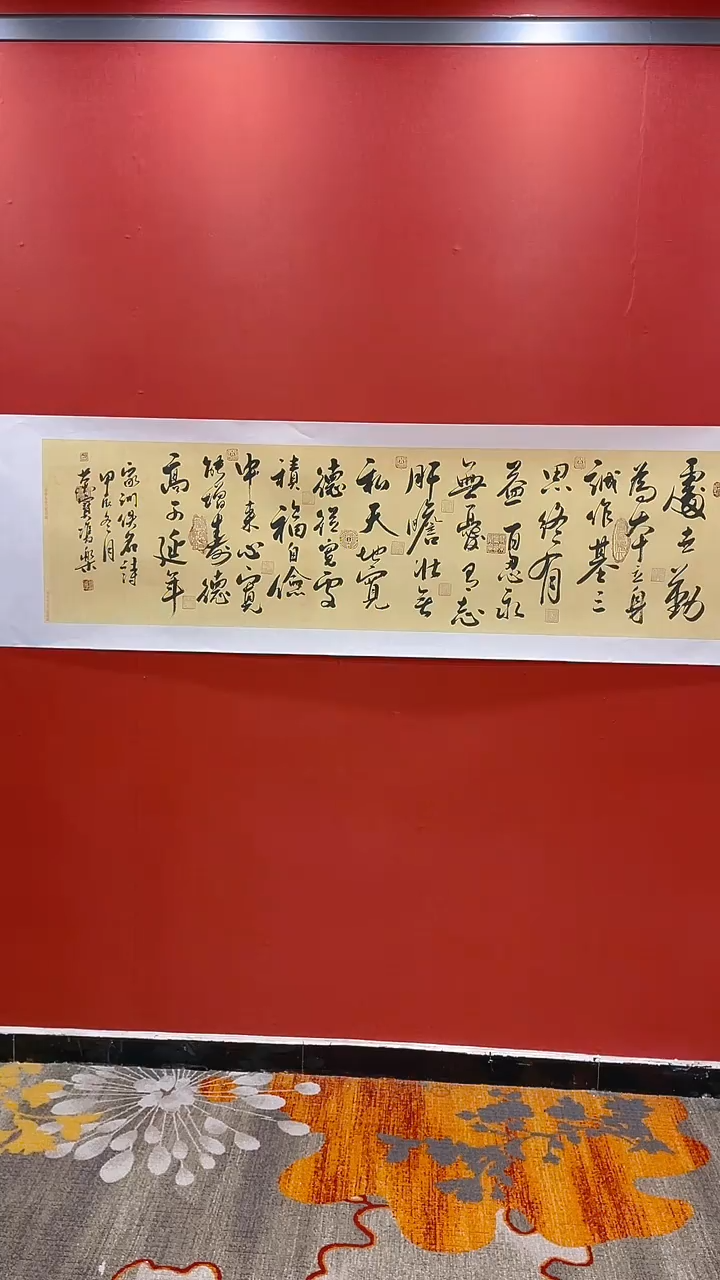 處世勤
為本立身
誠作基三
思終有
益百忍永
無憂有志
肝膽壯無
私天地寬
德從寬處
積福自儉
中來心寬
能增壽德
高可延年
家訓佚名詩
甲辰冬月